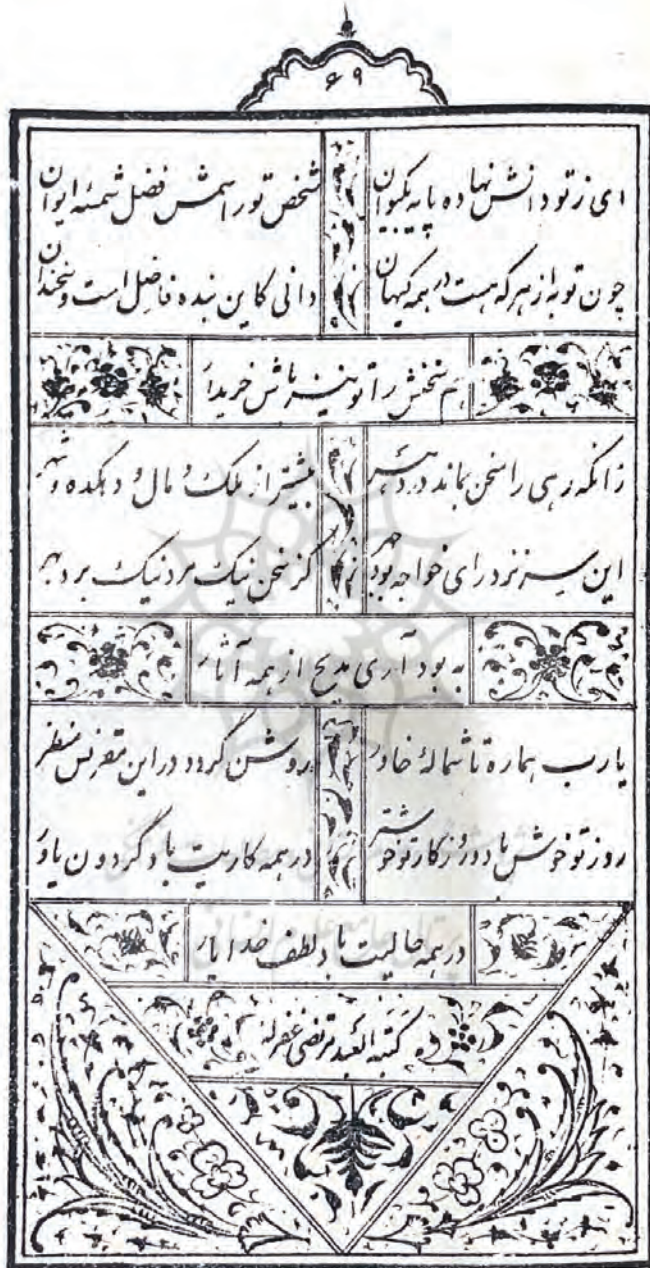 ۶۹
ای ز تو دانش نهاده پایه بکیوان شخص تو را شمس فضل شمسهٔ ایوان
چون تو به از هر که هست در همه کیهان دانی کاین بنده فاضل است و سخندان
هم سخنش را تو نیز باش خریدار
زانکه رهی را سخن بماند در دهر بیشتر از ملک و مال و دهکده و شهر
این سره نزد رای خواجه بود جهر کز سخن نیک مرد نیک برد بهر
به بود آری مدیح از همه آثار
یارب هماره تا شمالهٔ خاور روشن گردد در این مقرنس منظر
روز تو خوش باد و روزگار تو خوشتر در همه کاریت باد گردون یاور
در همه حالیت باد لطف خدا یار
کتبه العبد مرتضی غفرله
پرتال جامع علوم انسانی